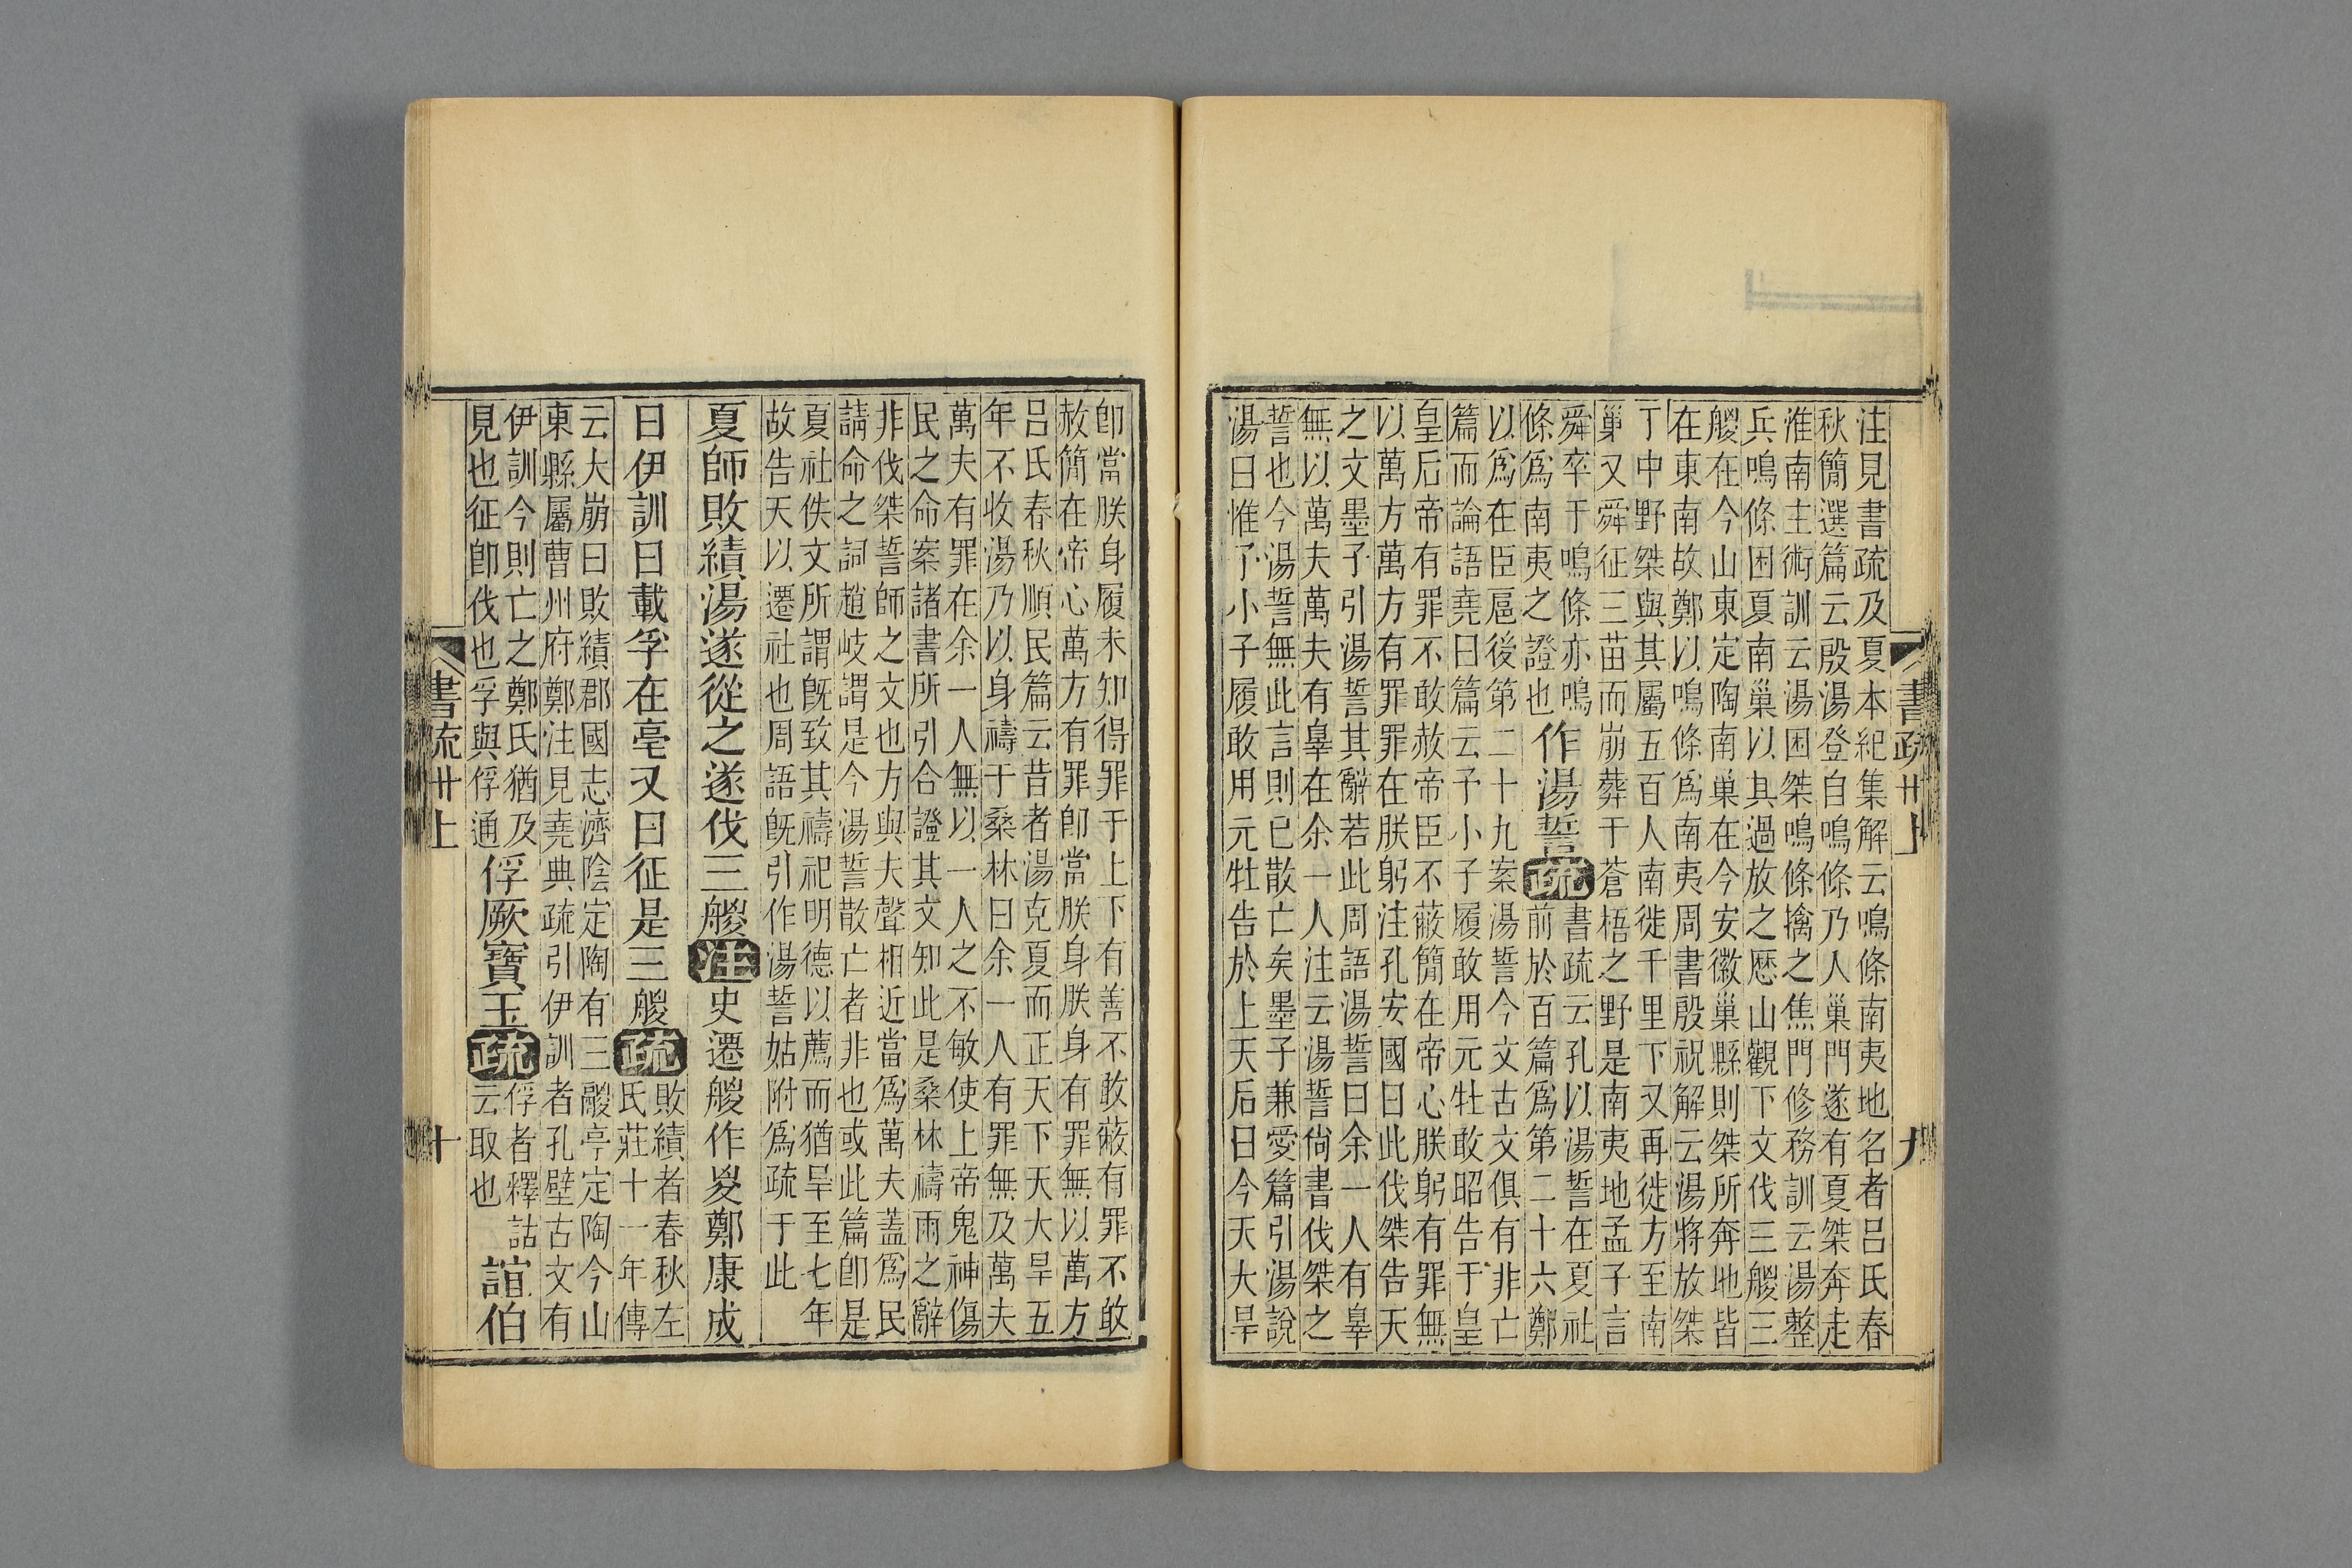 注見書疏及夏本紀集解云鳴條南夷地名者呂氏春
秋簡選篇云殷湯登自鳴條乃人巢門遂有夏桀奔走
淮南主術訓云湯困桀鳴條擒之焦門修務訓云湯整
兵鳴條困夏南巢以其過放之歷山觀下文伐三艐三
艐在今山東定陶南巢在今安徽巢縣則桀所奔地皆
在東南故鄭以鳴條爲南夷周書殷祝解云湯將放桀
丁中野桀與其屬五百人南徙千里下又再徙方至南
巢又舜征三苗而崩葬于蒼梧之野是南夷地孟子言
舜卒于鳴條亦鳴
條爲南夷之證也
作湯誓疏
書疏云孔以湯誓在夏社
前於百篇爲第二十六鄭
以爲在臣扈後第二十九案湯誓今文古文俱有非亡
篇而論語堯曰篇云予小子履敢用元牡敢昭告于皇
皇后帝有罪不敢赦帝臣不蔽簡在帝心朕躬有罪無
以萬方萬方有罪罪在朕躬注孔安國曰此伐桀告天
之文墨子引湯誓其辭若此周語湯誓曰余一人有辠
無以萬夫萬夫有辠在余一人注云湯誓尙書伐桀之
誓也今湯誓無此言則已散亡矣墨子兼愛篇引湯說
湯曰惟予小子履敢用元牡告於上天后曰今天大旱
書疏卅上
九
卽當朕身履未知得罪于上下有善不敢蔽有罪不敢
赦簡在帝心萬方有罪卽當朕身朕身有罪無以萬方
呂氏春秋順民篇云昔者湯克夏而正天下天大旱五
年不收湯乃以身禱于桑林曰余一人有罪無及萬夫
萬夫有罪在余一人無以一人之不敏使上帝鬼神傷
民之命案諸書所引合證其文知此是桑林禱雨之辭
非伐桀誓師之文也方與夫聲相近當爲萬夫蓋爲民
請命之詞趙岐謂是今湯誓散亡者非也或此篇卽是
夏社佚文所謂旣致其禱祀明德以薦而猶旱至七年
故告天以遷社也周語旣引作湯誓姑附爲疏于此
夏師敗績湯遂從之遂伐三艐注史遷艐作㚇鄭康成
曰伊訓曰載孚在亳又曰征是三艐疏
敗績者春秋左
氏莊十一年傳
云大崩曰敗績郡國志濟陰定陶有三鬷亭定陶今山
東縣屬曹州府鄭注見堯典疏引伊訓者孔壁古文有
伊訓今則亡之鄭氏猶及
見也征卽伐也孚與俘通
俘厥寶玉疏
俘者釋詁
云取也
誼伯
書疏卅上
十